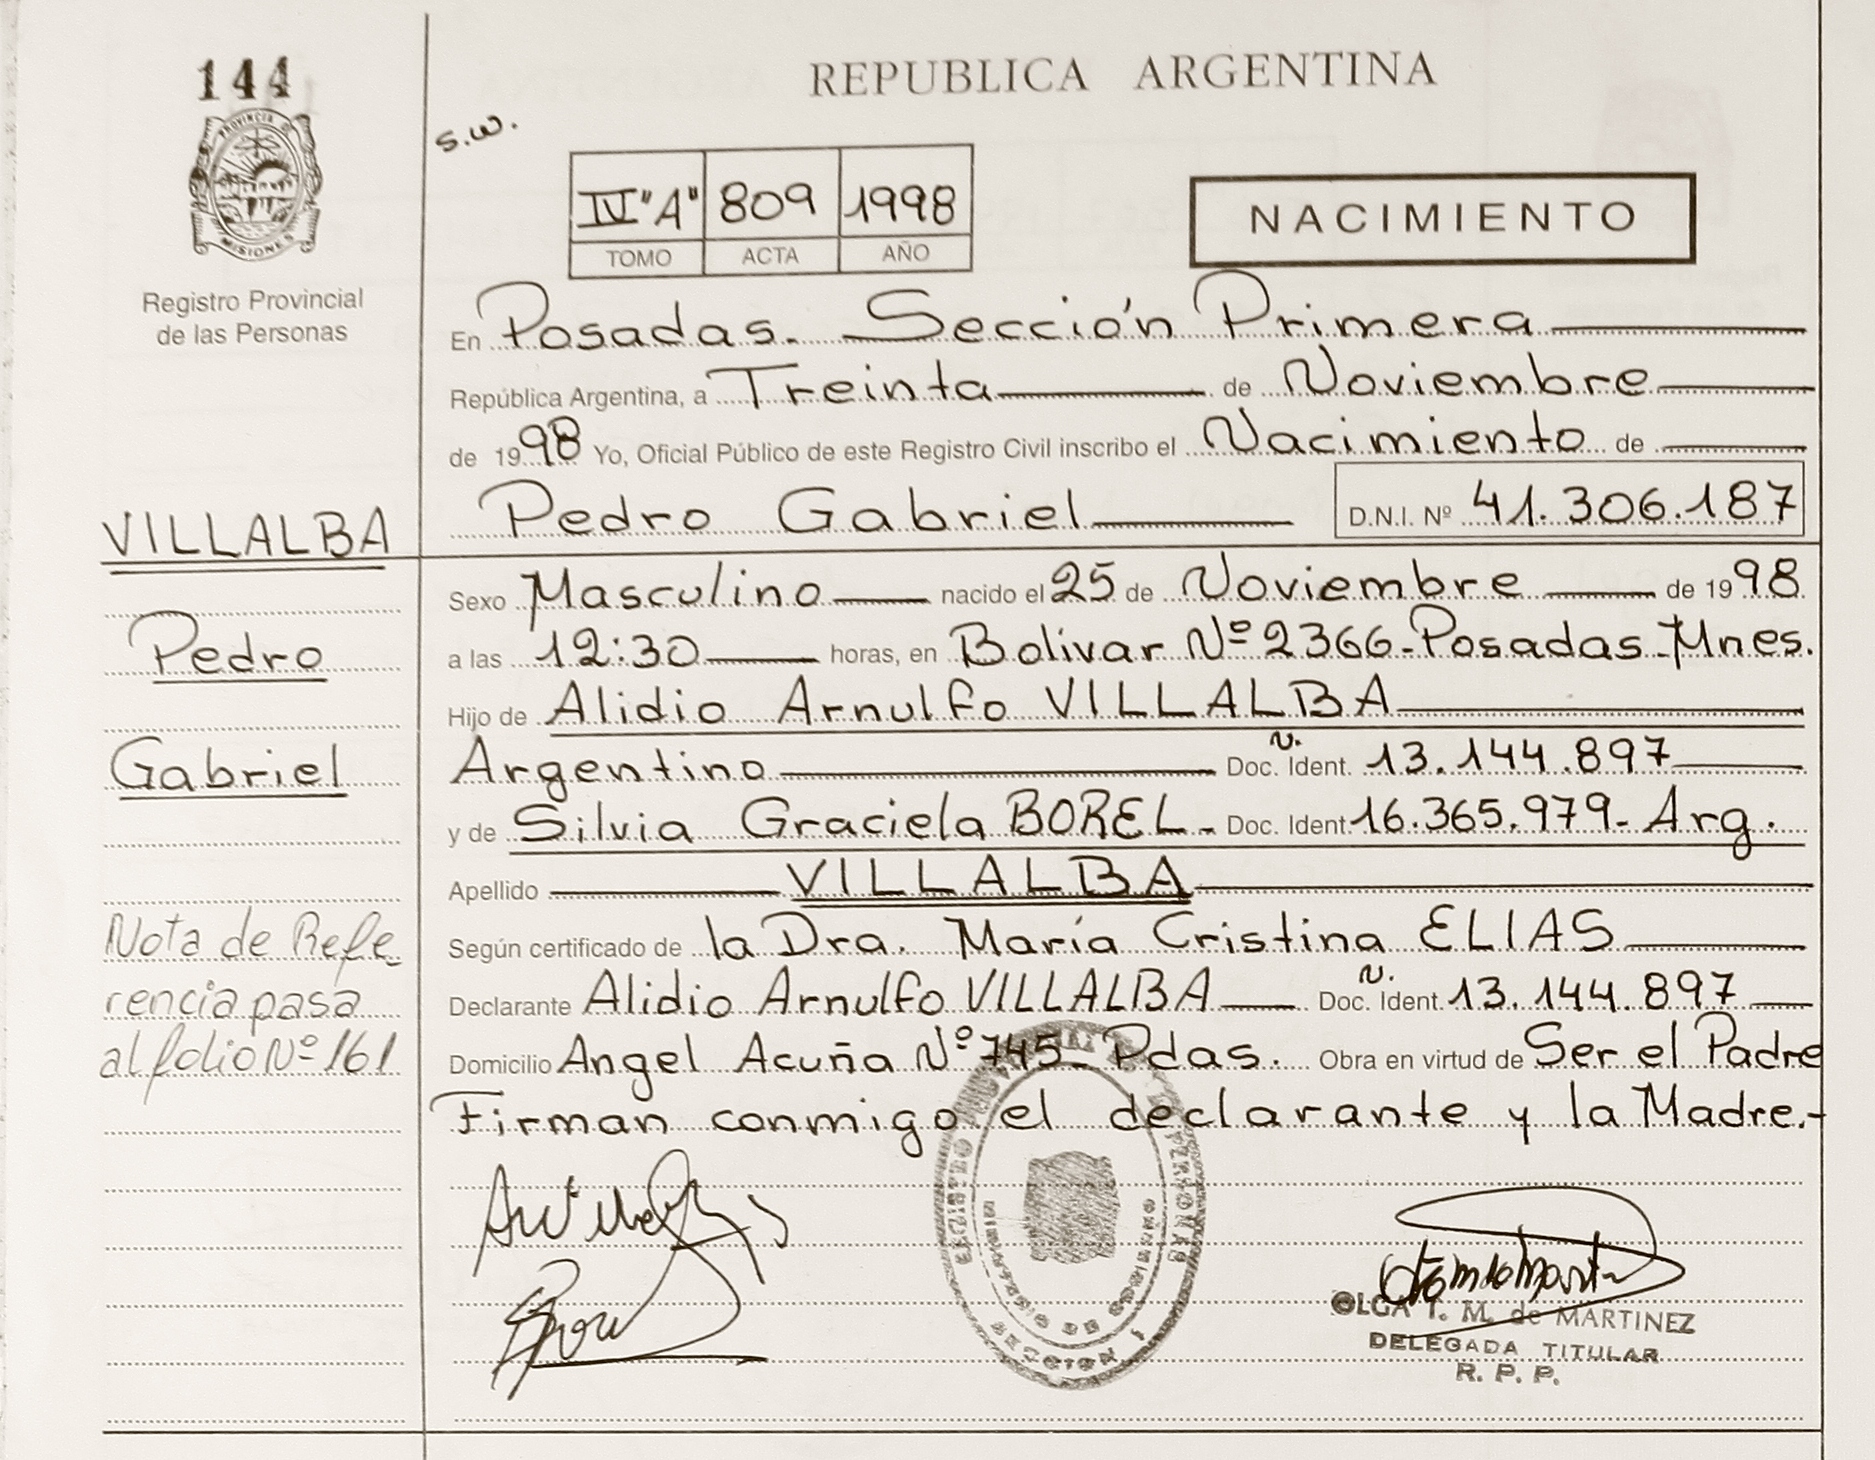 144
PROVINCIA DE
MISIONES
Registro Provincial
de las Personas
VILLALBA
Pedro
Gabriel
Nota de Refe
rencia pasa
al folio Nº 161
REPUBLICA ARGENTINA
s.w.
IV "A" 809 1998
TOMO ACTA AÑO
NACIMIENTO
En Posadas. Sección Primera
República Argentina, a Treinta de Noviembre
de 1998 Yo, Oficial Público de este Registro Civil inscribo el Nacimiento de
Pedro Gabriel D.N.I. Nº 41.306.187
Sexo Masculino nacido el 25 de Noviembre de 1998
a las 12:30 horas, en Bolivar Nº 2366-Posadas-Mnes.
Hijo de Alidio Arnulfo VILLALBA
Argentino Doc. Ident. 13.144.897
y de Silvia Graciela BOREL - Doc. Ident 16.365.979- Arg.
Apellido VILLALBA
Según certificado de la Dra. María Cristina ELIAS
Declarante Alidio Arnulfo VILLALBA Doc. Ident. 13.144.897
Domicilio Angel Acuña Nº 745- Pdas. Obra en virtud de Ser el Padre
Firman conmigo el declarante y la Madre.-
SECCION 1
OLGA T. M. de MARTINEZ
DELEGADA TITULAR
R. P. P.